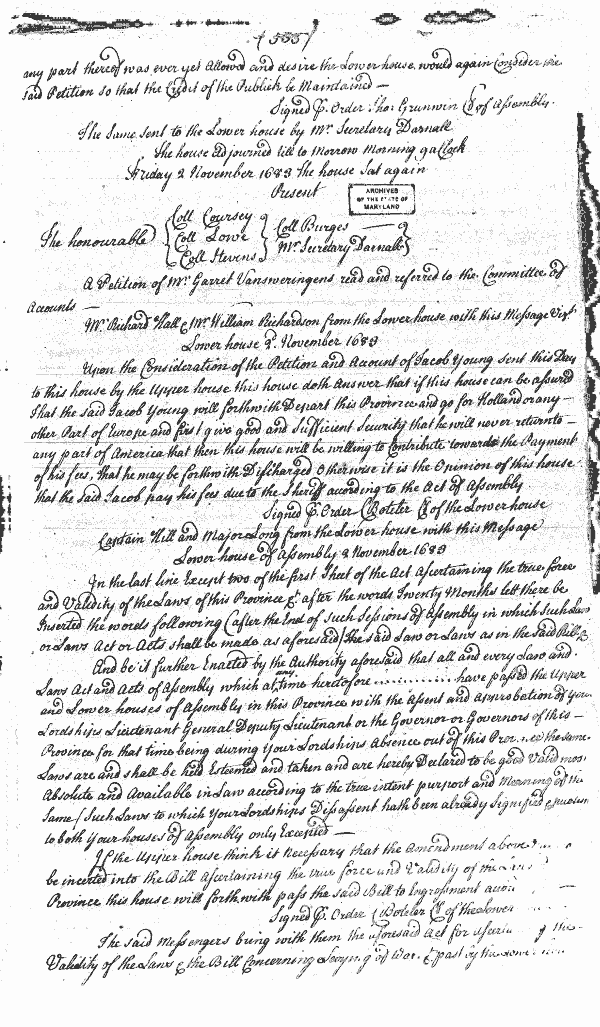 (555)
any part thereof was ever yet Allowed and desire the Lower house would again Consider the
said Petition so that the Credit of the Publick be Maintained —
Signed P. Order Tho: Grunwin Cl of Assembly.
The Same sent to the Lower house by Mr. Secretary Darnall
The house Adjourned till to Morrow Morning 9 aClock
Friday 2 November 1683 The house Sat again
Present
ARCHIVES
OF THE STATE OF
MARYLAND
The honourable { Coll Coursey
Coll Lowe
Coll Stevens } Coll Burges
Mr. Secretary Darnall }
A Petition of Mr. Garret Vansweringens read and referred to the Committee of
Accounts —
Mr. Richard Hall & Mr. William Richardson from the Lower house with this Message Vizt
Lower house 2d. November 1683
Upon the Consideration of the Petition and Account of Jacob Young sent this Day
to this house by the Upper house this house doth Answer that if this house can be assured
That the said Jacob Young will forthwith Depart this Province and go for Holland or any —
other Part of Europe and first give good and Sufficient Security that he will never return to —
any part of America that then this house will be willing to Contribute towards the Payment
of his fees, that he may be forthwith Discharged otherwise it is the Opinion of this house
that the Said Jacob pay his fees due to the Sheriff according to the Act of Assembly
Signed P. Order Boteler Cl of the Lower house
Captain Hill and Major Long from the Lower house with this Message
Lower house of Assembly 2 November 1683
In the last line Except two of the first Sheet of the Act Ascertaining the true force
and Validity of the Laws of this Province &c. after the words Twenty Months left there be
Inserted the words following (after the End of such Sessions of Assembly in which Such Law
or Laws Act or Acts shall be made as aforesaid) the said Law or Laws as in the said Bill &c
And be it further Enacted by the Authority aforesaid that all and every Law and
Laws Act and Acts of Assembly which at any time heretofore ............ have passed the Upper
and Lower houses of Assembly in this Province with the Assent and Approbation of your
Lordships Lieutenant General Deputy Lieutenant or the Governor or Governors of this —
Province for that time being during Your Lordships Absence out of this the same
Laws are and shall be held Esteemed and taken and are hereby Declared to be good Valid most
Absolute and Available in Law according to the true intent purport and Meaning of the
Same (Such Laws to which Your Lordships Dissassent hath been already Signified
to both Your houses of Assembly only Excepted —
If the Upper house think it necessary that the Amendment above
be inserted into the Bill Ascertaining the true force and Validity of the
Province this house will forthwith pass the said Bill to Engrossment
Signed P. Order Boteler Cl of the Lower
The said Messengers bring with them the aforesaid Act for of the
Validity of the Laws & the Bill Concerning Levying of War & past by the